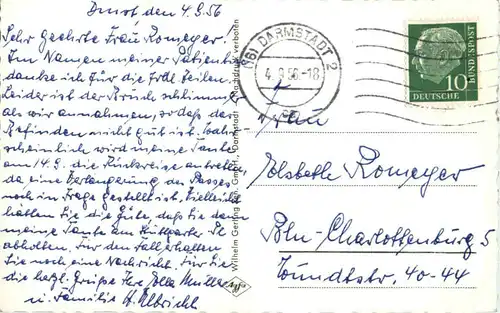 Darmst. den 4.9.56
Sehr Geehrte Frau Romeyer
Im Namen meiner Patientin
danke ich für die Zeilen.
Leider ist der Bruch schlimmer
als wir annahmen, so daß das
Befinden nicht gut ist. Wahr-
scheinlich wird meine Tante
am 14.9. die Rückreise antreten,
da eine Verlängerung des Passes
noch in Frage gestellt ist. Vielleicht
hätten Sie die Güte, daß Sie dann
meine Tante am Stuttgarter Pl.
abholten. Für den Fall erhalten
Sie noch eine Nachricht. Für Sie
die herzl. Grüße Ihre Müller
u. Familie H. Ulbricht
Wilhelm Gerling, GmbH., Darmstadt Nachdruck verboten
(16) DARMSTADT 2
4.9.56.-18
DEUTSCHE BUNDESPOST
10
Frau
Elsbeth Romeyer
Bln-Charlottenburg 5
40-44